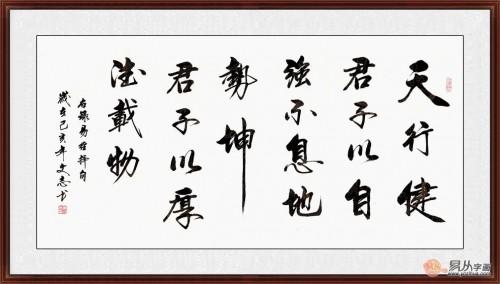 天行健
君子以自
強不息地
勢坤
君子以厚
德載物
右錄易經擇句
歲在己亥年文志书
易从字画